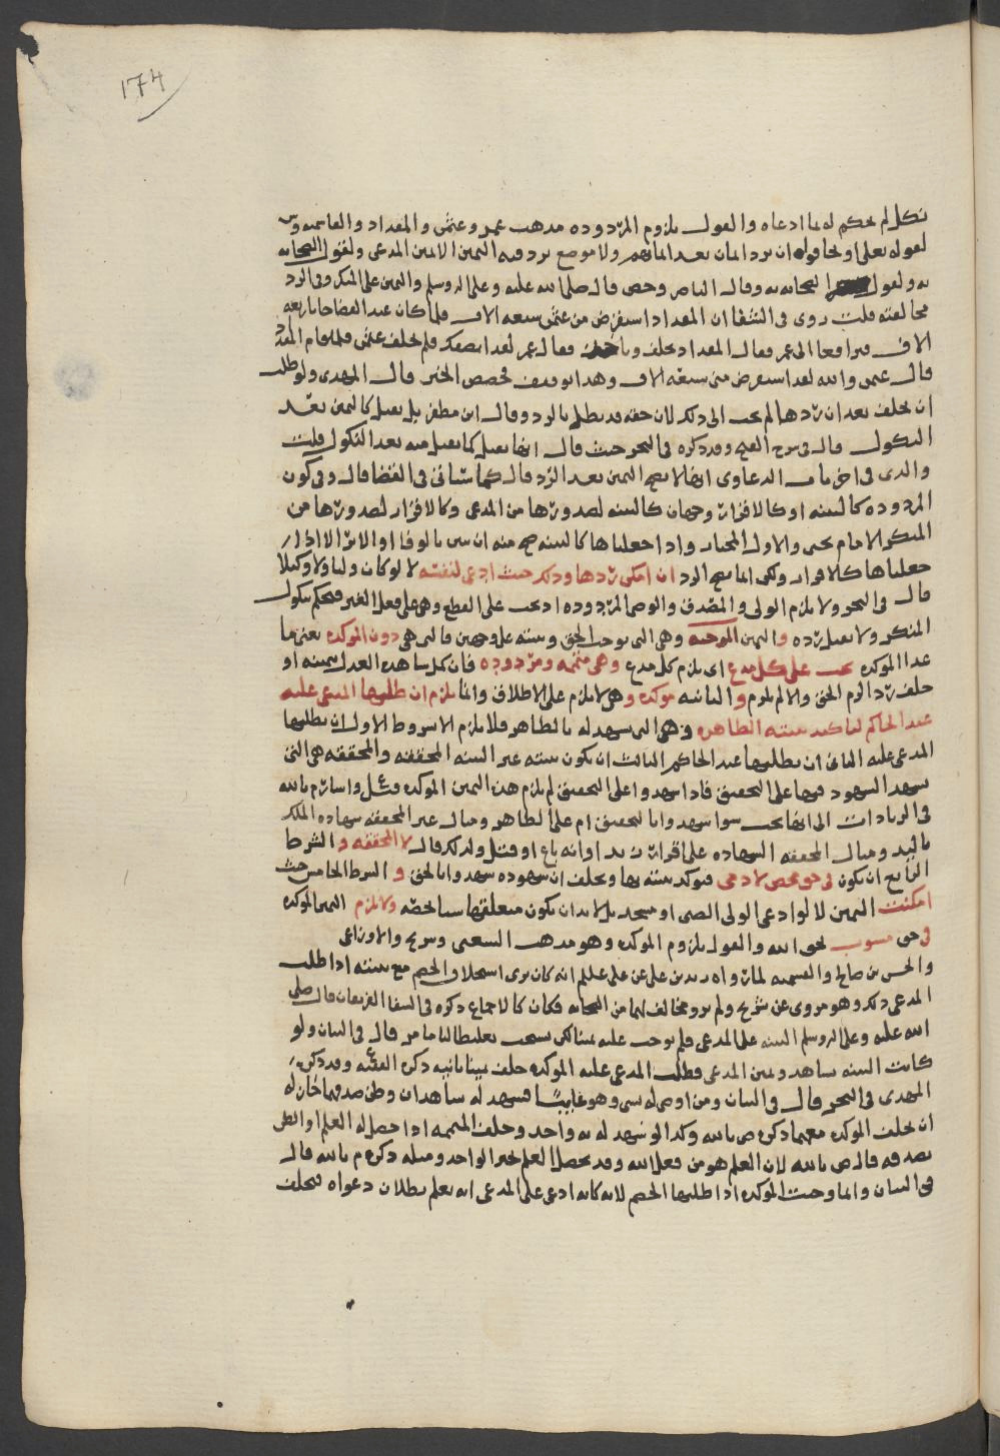 174
نكل لم يحكم له بما ادعاه والقول بلزوم المردوده مذهب عمر وعثمن والمقداد والقاسميه وس
لقوله تعلى او يخافوا ان ترد ايمان بعد ايمانهم ولا موضع ترد فيه اليمين الا يمين المدعى ولقول الصحابه
به ولقول الصحابه به وقال الناصر وحص قال صلى الله عليه وعلى اله وسلم واليمين على المنكر وفى الرد
مخالفته قلت روى فى الشفا ان المقداد استقرض من عثمن سبعه الاف فلما كان عند القضا جا باربعه
الاف فترافعا الى عمر فقال المقداد يحلف وياخذ فقال عمر لقد انصفك فلم يحلف عثمن فلما قام المقداد
قال عثمن والله لقد استقرض منى سبعة الاف وهذا توقيف فخصص الخبر قال المهدى ولو طلب
ان يحلف بعد ان ردها لم يجب الى ذلك لان حقه قد بطل بالرد وقال ابن مظفر بل يقبل كاليمين بعد
النكول قال فى شرح الفتح وقد ذكره فى البحر حيث قال ايضا يقبل كما يقبل منه بعد النكول قلت
والذى فى اخر باب الدعاوى ايضا لا يصح اليمين بعد الرد قال كما سياتى فى القضا قال وفى كون
المردوده كالبينه او كالاقرار وجهان كالبينه لصدورها من المدعى وكالاقرار لصدورها من
المنكر الامام يحيى والاول المختار واذا جعلناها كالبينه صح منه ان يبين بالوفا او الابرا لا اذا
جعلناها كالاقرار ولكن انما يصح الرد ان امكن ردها وذلك حيث ادعى لنفسه لا لو كان وليا ولا وكيلا
قال فى البحر ولا يلزم الولى والمصدق والوصى المردوده اذ تجب على القطع وهى على فعل الغير فيحكم بنكول
المنكر ولا يقبل رده واليمين الموجبه وهى التى توجب الحق وبينته على وجهين فالتى هى دون المؤكده يعنى ما
عدا المؤكده تجب على كل مدع اى يلزم كل مدع وهى متممه ومردوده فان كل شاهده العدل بيمينه او
حلف رد الزم الحق والا لم يلزم والثانيه مؤكده وهى لا تلزم على الاطلاق وانما يلزم ان طلبها المدعى عليه
عند الحاكم لتاكيد بينته الظاهره وهى التى شهد له بالظاهر فلا يلزم الا بشروط الاول ان يطلبها
المدعى عليه الثانى ان يطلبها عند الحاكم الثالث ان يكون بينته غير البينه المحققه والمحققه هى التى
يشهد الشهود فيها على التحقيق فاذا شهدوا على التحقيق لم يلزم هذه اليمين المؤكده وقيل واشار م بالله
فى الزيادات الى انها يجب سوا شهدوا بالتحقيق ام على الظاهر ومثال غير المحققه شهاده الملك
باليد ومثال المحققه الشهاده على اقرار زيد او انه باع او قتل ولذلك قال لا المحققه والشرط
الرابع ان يكون فى حق محض لادمى فيؤكد بينته بها ويحلف ان شهوده شهدوا بالحق والشرط الخامس حيث
امكنت اليمين لا لو ادعى الولى للصبى او مسجد بل لا بد ان يكون متعلقها شيا يخصه ولا تلزم اليمين المؤكده
فى حق مشوب بحق الله والقول بلزوم المؤكده وهو مذهب الشعبى وشريح والاوزاعى
والحسن بن صالح والقسميه لما رواه زيد بن على عن على عليلم انه كان يرى استحلاف الخصم مع بينته اذا طلب
المدعى ذلك وهو مروى عن شريح ولم يرو مخالف لهما من الصحابه فكان كالاجماع ذكره فى الشفا الفريقان قال صلى
الله عليه وعلى اله وسلم البينه على المدعى فلم يوجب عليه يمينا لكن يستحب تغليظا لنا ما مر قال فى البيان ولو
كانت البينه شاهد ويمين المدعى وطلب المدعى عليه المؤكده حلف يمينا ثانيه ذكره الفقيه وقد ذكره
المهدى فى البحر قال فى البيان ومن اوصى له بشى وهو غايبا فشهد له شاهدان وظن صدقهما جاز له
ان يحلف المؤكده معهما ذكره ص بالله وكذا لو شهد له به واحد وحلف المتممه اذا حصل له العلم او الظن
بصدقه قال ص بالله لان العلم هو من فعل الله وقد يحصل العلم خبر الواحد ومثله ذكره م بالله قال
فى البيان وانما وجبت المؤكده اذا طلبها الخصم لانه كانه ادعى على المدعى انه يعلم بطلان دعواه فيحلف